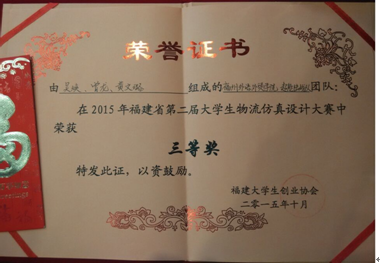 荣誉证书
由 组成的 团队:
在 2015 年福建省第二届大学生物流仿真设计大赛中
荣获
三等奖
特发此证，以资鼓励。
福建大学生创业协会
二零一五年十月